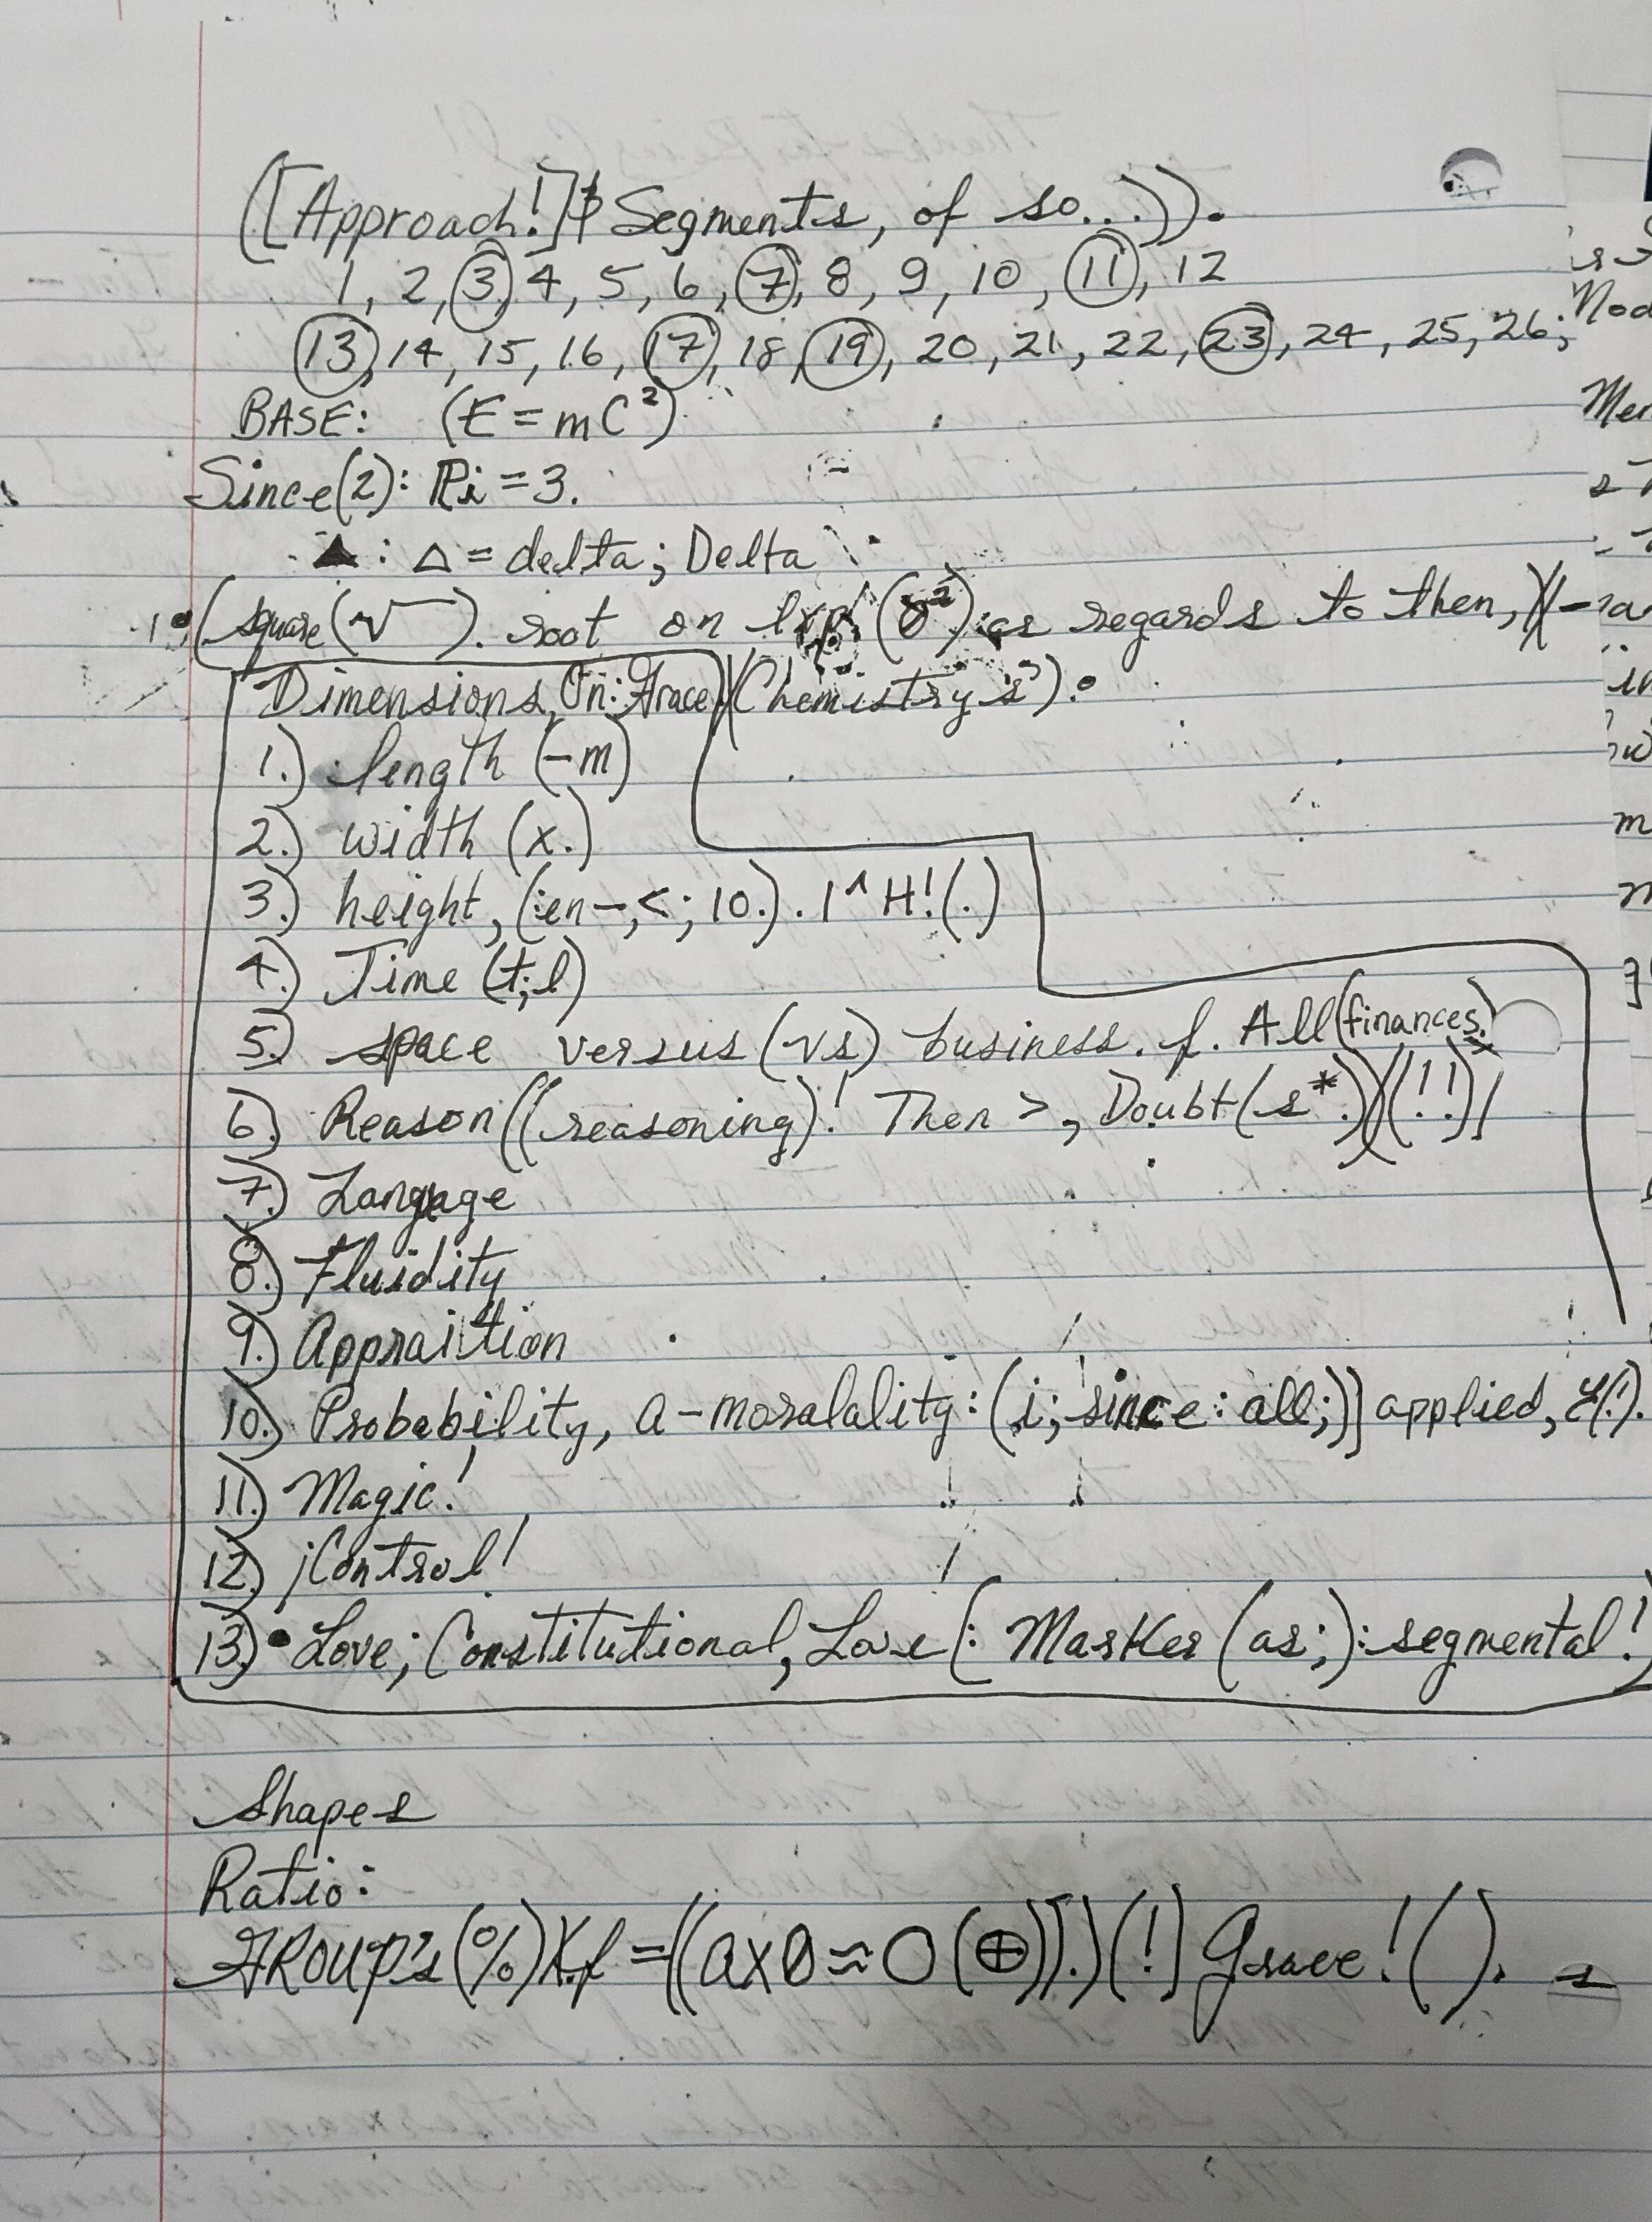 ([Approach!] Segments, of so...)).
1, 2, 3, 4, 5, 6, 7, 8, 9, 10, 11, 12
13, 14, 15, 16, 17, 18, 19, 20, 21, 22, 23, 24, 25, 26;
BASE: (E = mC²)
Since(2): Pi = 3.
▲: △ = delta; Delta
(square(√ ). root on (8²) as regards to then,
Dimensions, On: Grace)(Chemistry's).
1.) length (-m)
2.) width (x.)
3.) height, (:en-,<; 10.). 1^H!(.)
4.) Time (t;l)
5.) space versus (vs) business. f. All (finances.)
6.) Reason((reasoning)! Then >, Doubt(s*.))(!!)
7.) Language
8.) Fluidity
9.) Appraition
10.) Probability, a-moralality: (i; since: all;)] applied,
11.) Magic!
12.) ¡Control!
13.) • Love; Constitutional, Love [: MarKer (as;): segmental!
Shapes
Ratio:
GROUP's (%) X.f = ((ax0 ≈ O (⊕)).)(!] Grace! ( ).